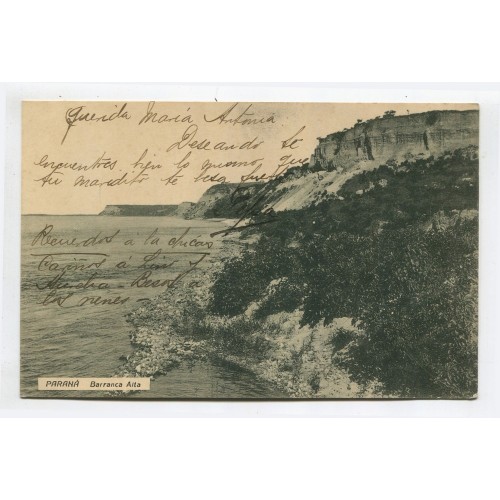 Querida María Antonia
Deseando te
encuentres bien lo mismo que
tu maridito te besa
Recuerdos a la
Cariños á Luis y
Besos a
los nenes -
PARANÁ Barranca Alta